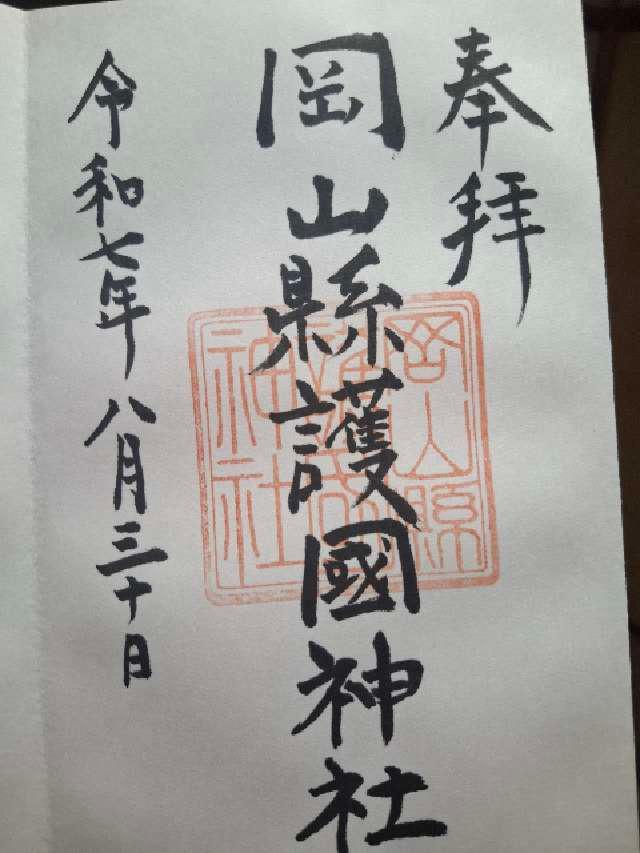 奉拝
岡山縣護國神社
岡山縣護國神社
令和七年八月三十日